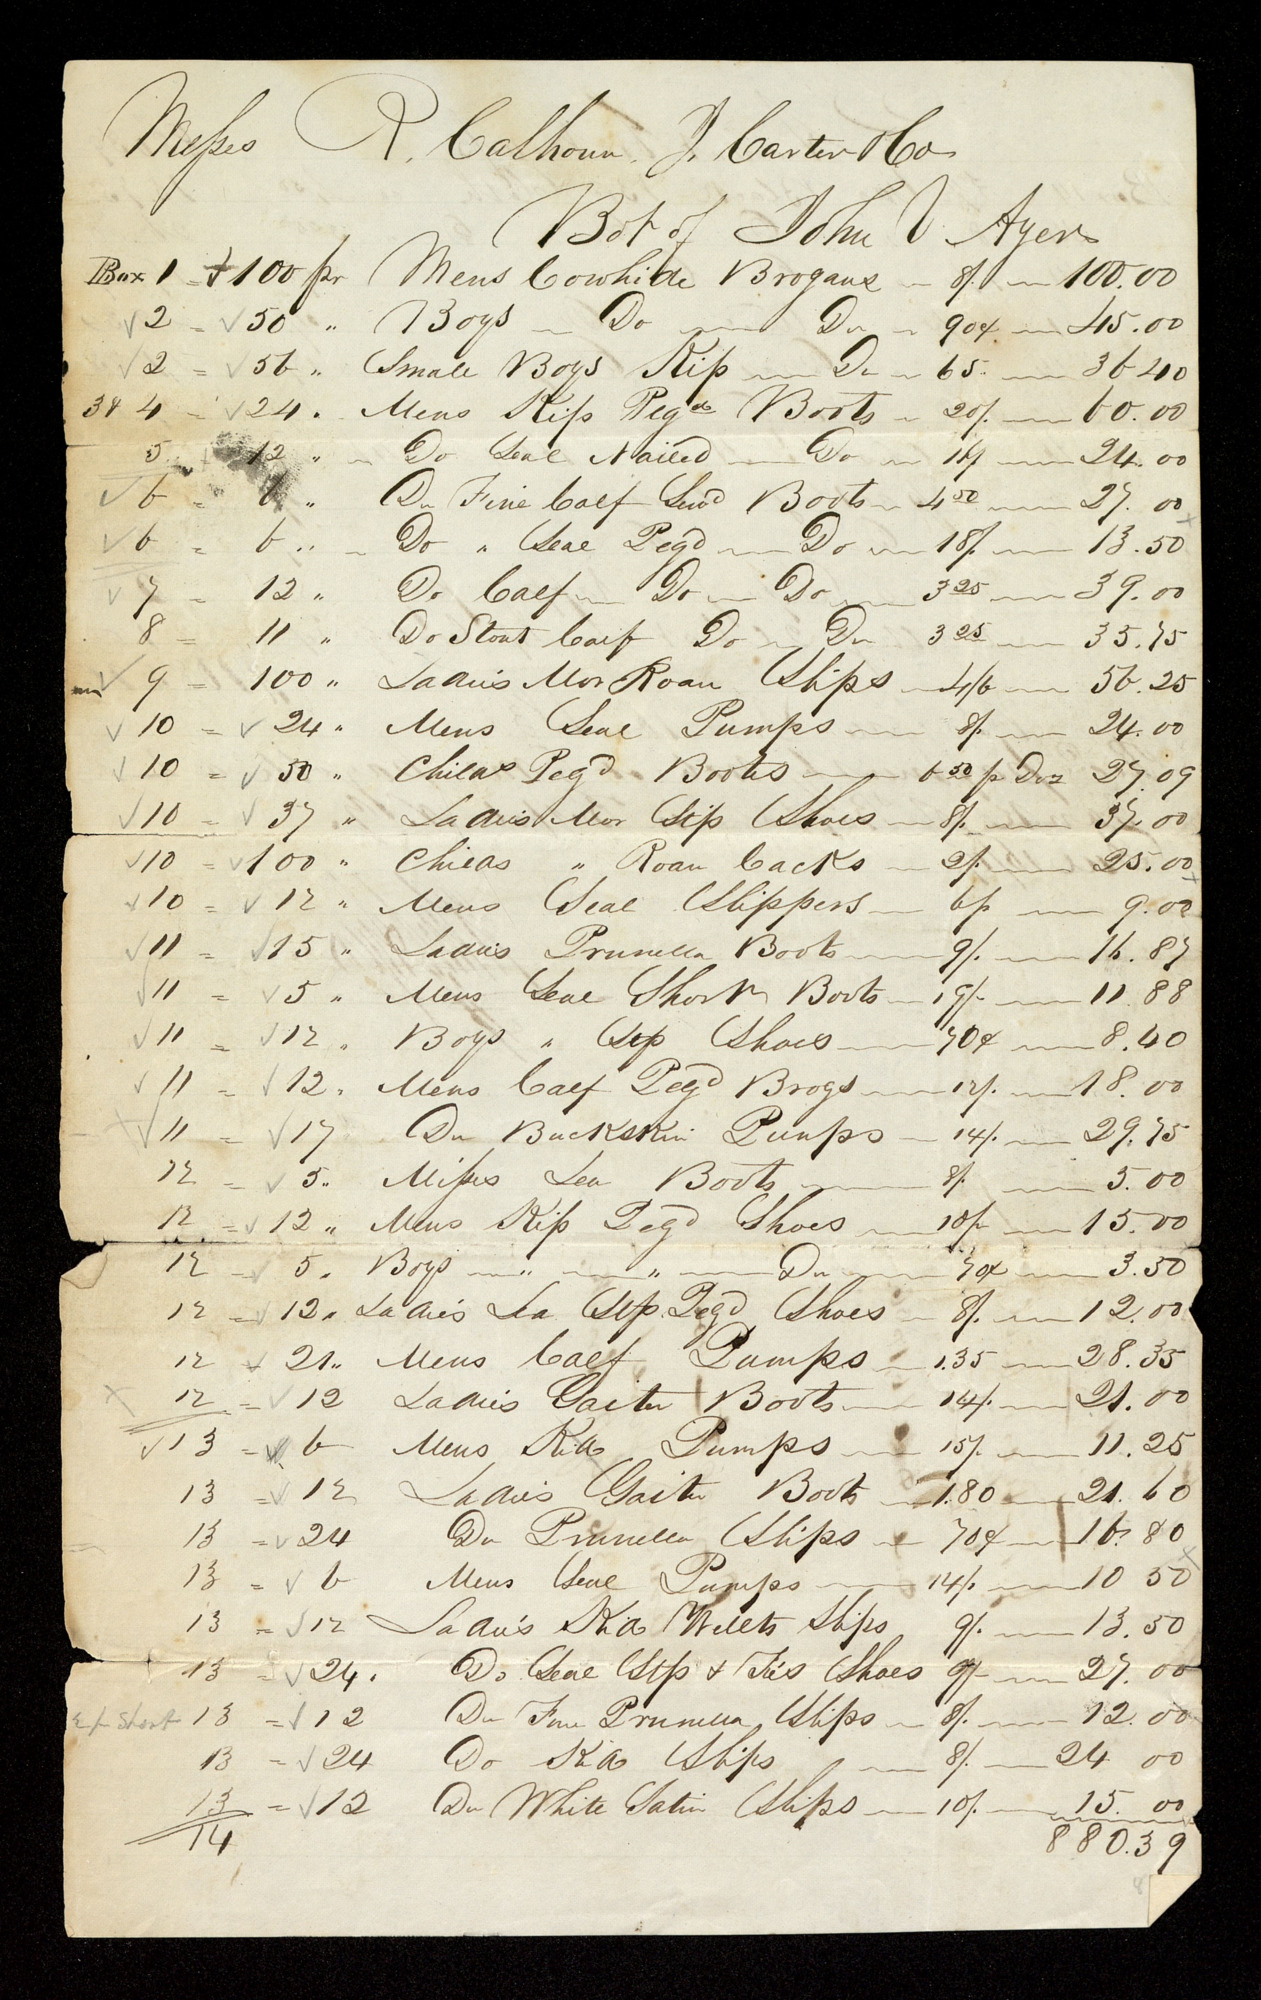 Messrs R. Calhoun. J. Carter & Co
Bot of John V Ayers
Box 1 = 100 pr Mens Cowhide Brogans 8/. 100.00
2 = 50 " Boys Do Do 90¢ 45.00
2 = 56 " Small Boys Kip Do 65. 36 40
3 & 4 = 24 " Mens Kip Pegd Boots 20/. 60.00
5 12 " Do Seal Nailed Do 16/ 24.00
6 = 6 " Do Fine Calf Sewd Boots 4 50 27.00
6 = 6 " Do " Seal Pegd Do 18/. 13.50
7 = 12 " Do Calf Do Do 3 25 39.00
8 = 11 " Do Stout Calf Do Do 3 25 35.75
9 = 100 " Ladies Mor Roan Slips 4/6 56.25
10 = 24 " Mens Seal Pumps 8/. 24.00
10 = 50 " Childs Pegd Boots 6 50 p Doz 27.09
10 = 37 " Ladies Mor Stp Shoes 8/. 37.00
10 = 100 " Childs " Roan Cacks 2/. 25.00
10 = 12 " Mens Seal Slippers 6/ 9.00
11 = 15 " Ladies Prunella Boots 9/. 16.87
11 = 5 " Mens Seal Short Boots 19/. 11.88
11 = 12 " Boys " Stp Shoes 70¢ 8.40
11 = 12 " Mens Calf Pegd Brogs 12/. 18.00
11 = 17 Do Buckskin Pumps 14/. 29.75
12 = 5 " Misses Lea Boots 8/. 5.00
12 = 12 " Mens Kip Pegd Shoes 10/. 15.00
12 = 5 " Boys " " Do 70¢ 3.50
12 = 12 " Ladies Lea Stp Pegd Shoes 8/. 12.00
12 21 " Mens Calf Pumps 1.35 28.35
12 = 12 Ladies Gaiter Boots 14/. 21.00
13 = 6 Mens Kid Pumps 15/. 11.25
13 = 12 Ladies Gaiter Boots 1.80 21.60
13 = 24 Do Prunella Slips 70¢ 16.80
13 = 6 Mens Seal Pumps 14/. 10 50
13 = 12 Ladies Kid Welts Slips 9/. 13.50
13 = 24. Do Seal Stp & Ties Shoes 9/ 27.00
2 p Short 13 = 12 Do Fine Prunella Slips 8/. 12.00
13 = 24 Do Kid Slips 8/. 24 00
13 = 12 Do White Satin Slips 10/. 15.00
14 880.39